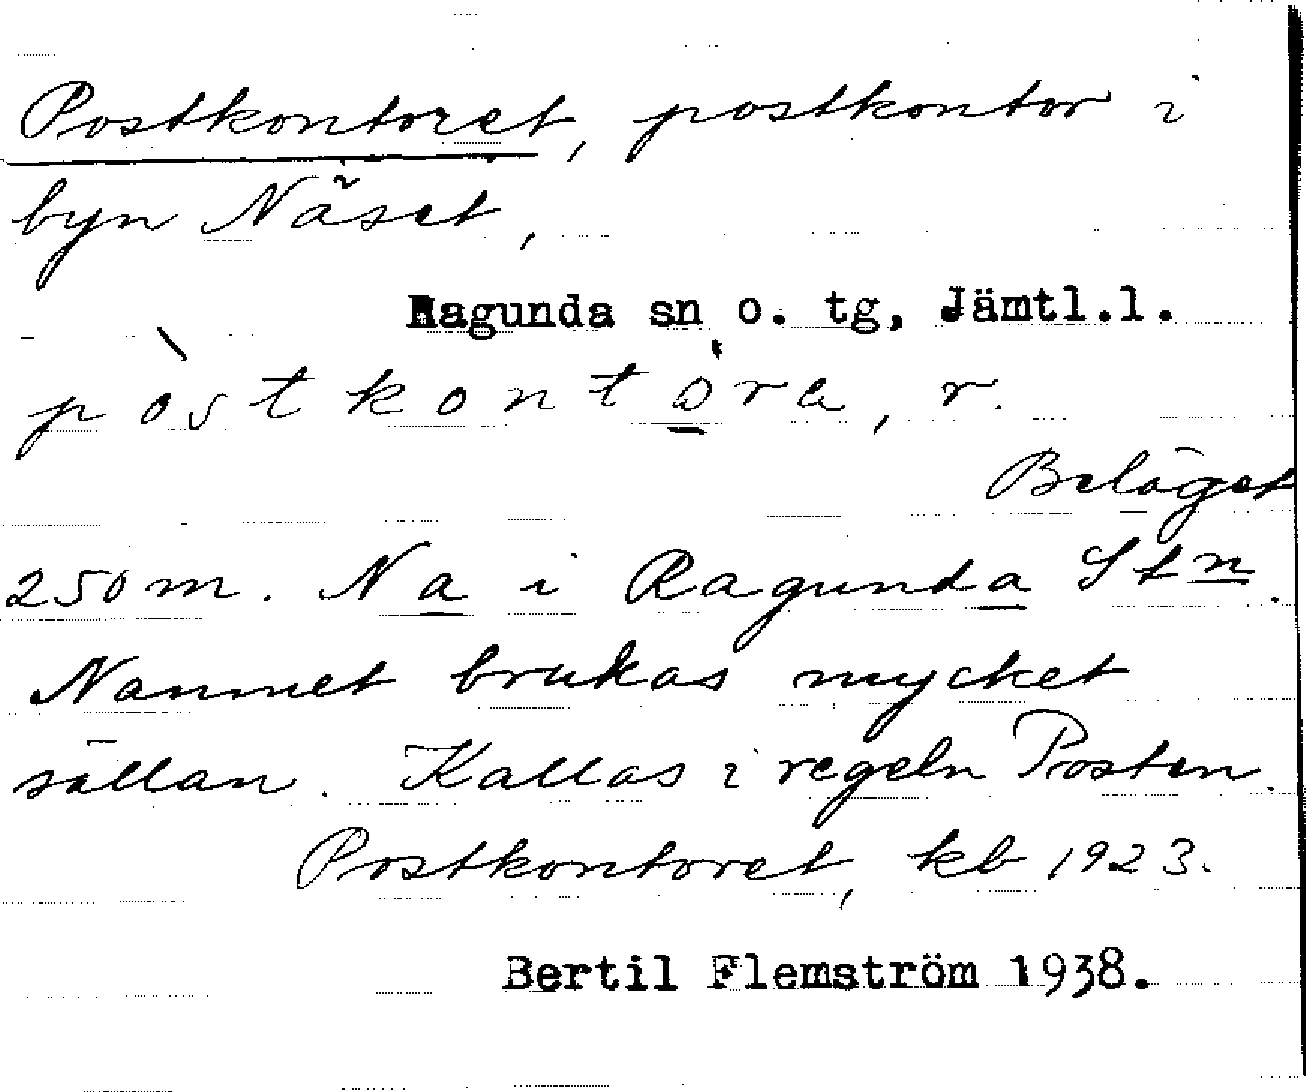 Postkontoret, postkontor i
byn Näset,
Ragunda sn o. tg, Jämtl.l.
pòstkontò̱ra, r.
Beläget
250 m. N a i Ragunda Stn.
Namnet brukas mycket
sällan. Kallas i regeln Posten.
Postkontoret, kb 1923.
Bertil Flemström 1938.